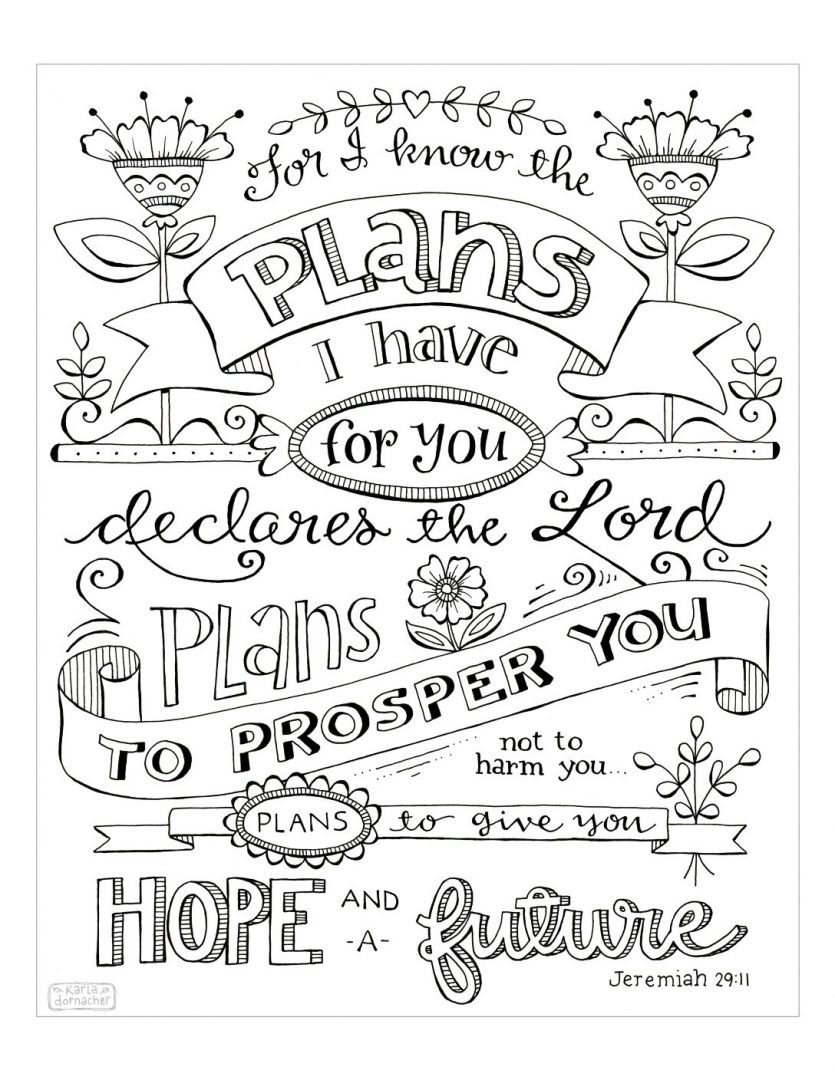 For I know the
Plans
I have
for you
declares the Lord
Plans
TO PROSPER YOU
not to
harm you...
PLANS to give you
HOPE AND
-A- future
Jeremiah 29:11
Karla
dornacher